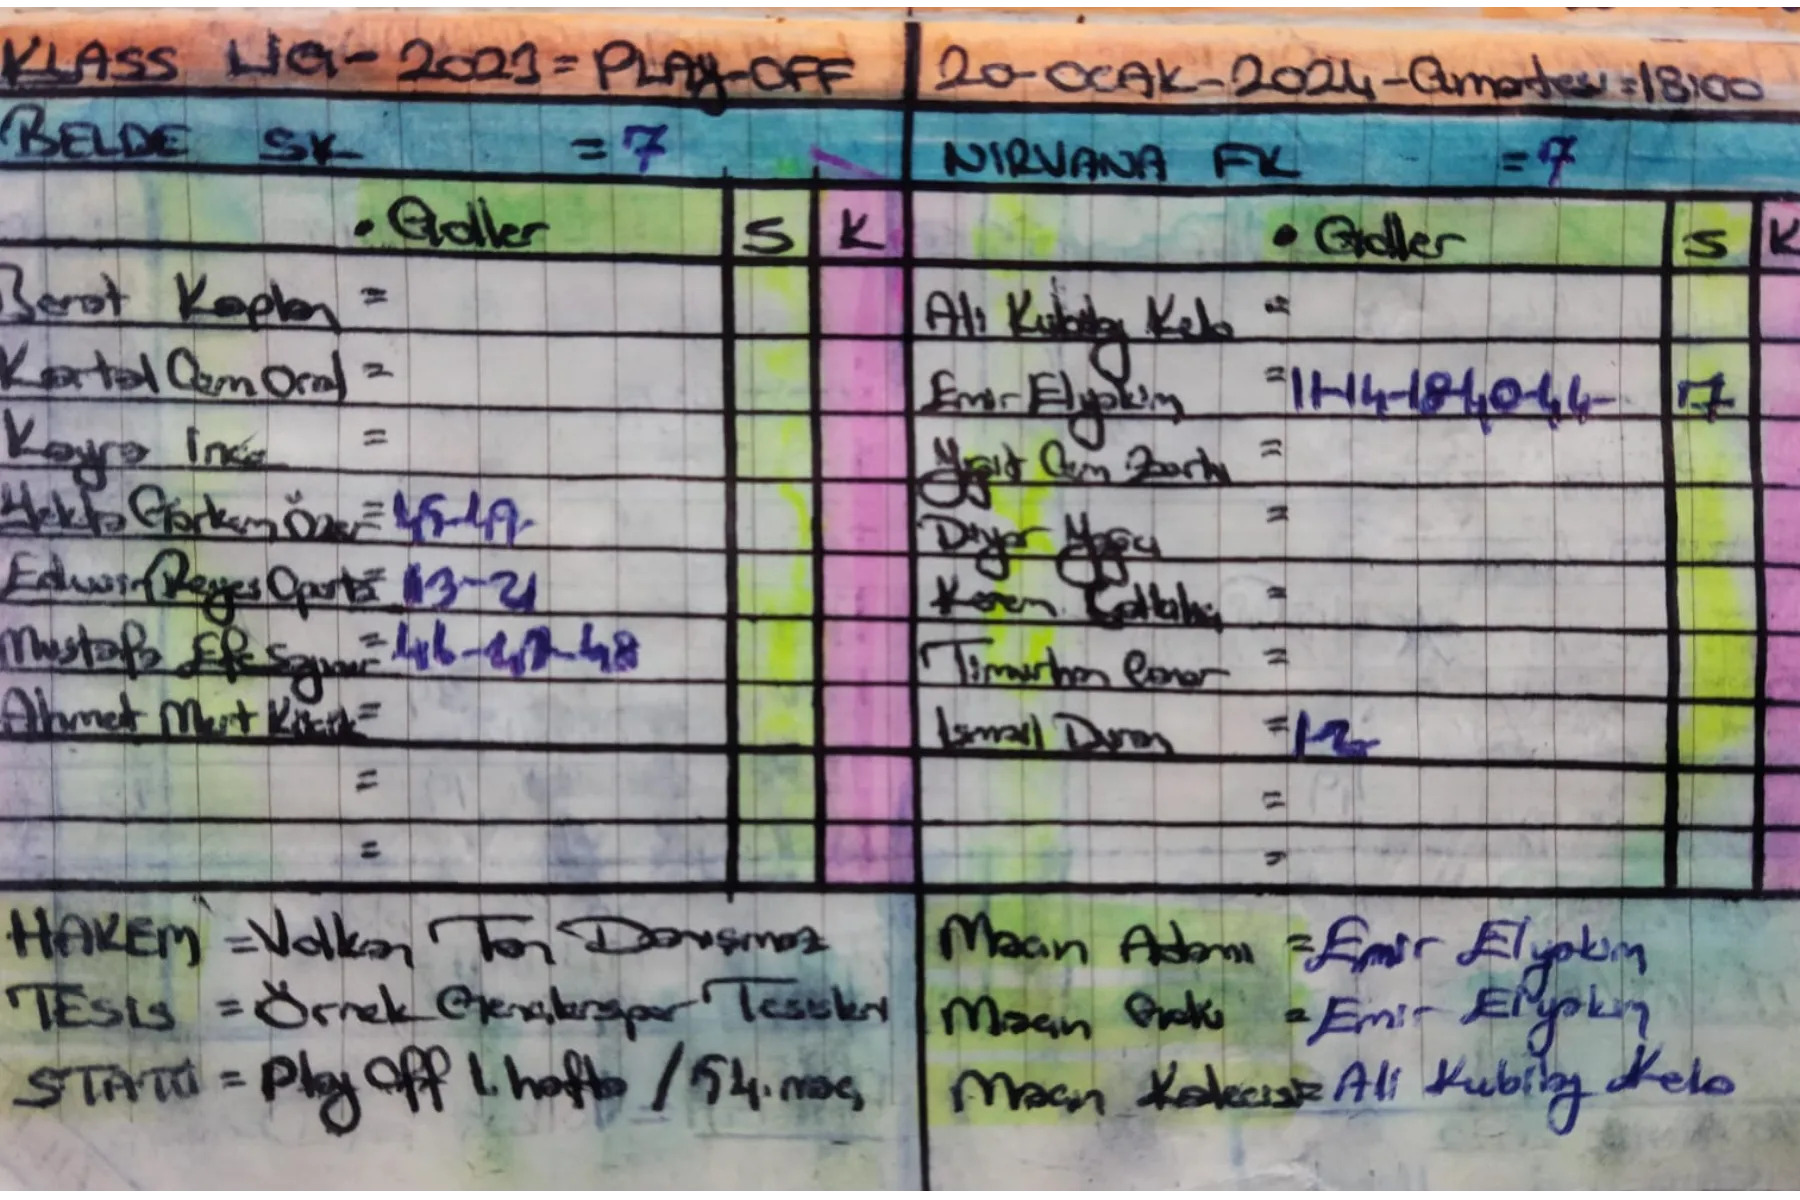 KLASS LİG- 2023 = PLAY-OFF
20-OCAK-2024-Cumartesi=18:00
BELDE SK = 7
NIRVANA FK = 7
• Goller S K
• Goller S K
Berat Kaplan =
Ali Kubilay Kela =
Kartal Cem Oral =
Emir Elyakım = 11-14-18-40-44- 17
Kayra İnce =
Yiğit Cem =
Yekta Görkem Özer = 45-49-
Diyar Yağcı =
Edwin Reyes = 13-21
Kerem =
Mustafa Efe = 46-47-48
Timurhan =
Ahmet Mert =
Ismail Duran = 1-2-
=
=
=
=
HAKEM = Volkan Tan Danışmaz
Maçın Adamı = Emir Elyakım
TESIS = Örnek Gençlerspor Tesisleri
Maçın Golü = Emir Elyakım
STATÜ = Play Off 1. hafta / 54. maç
Maçın Kalecisi = Ali Kubilay Kela